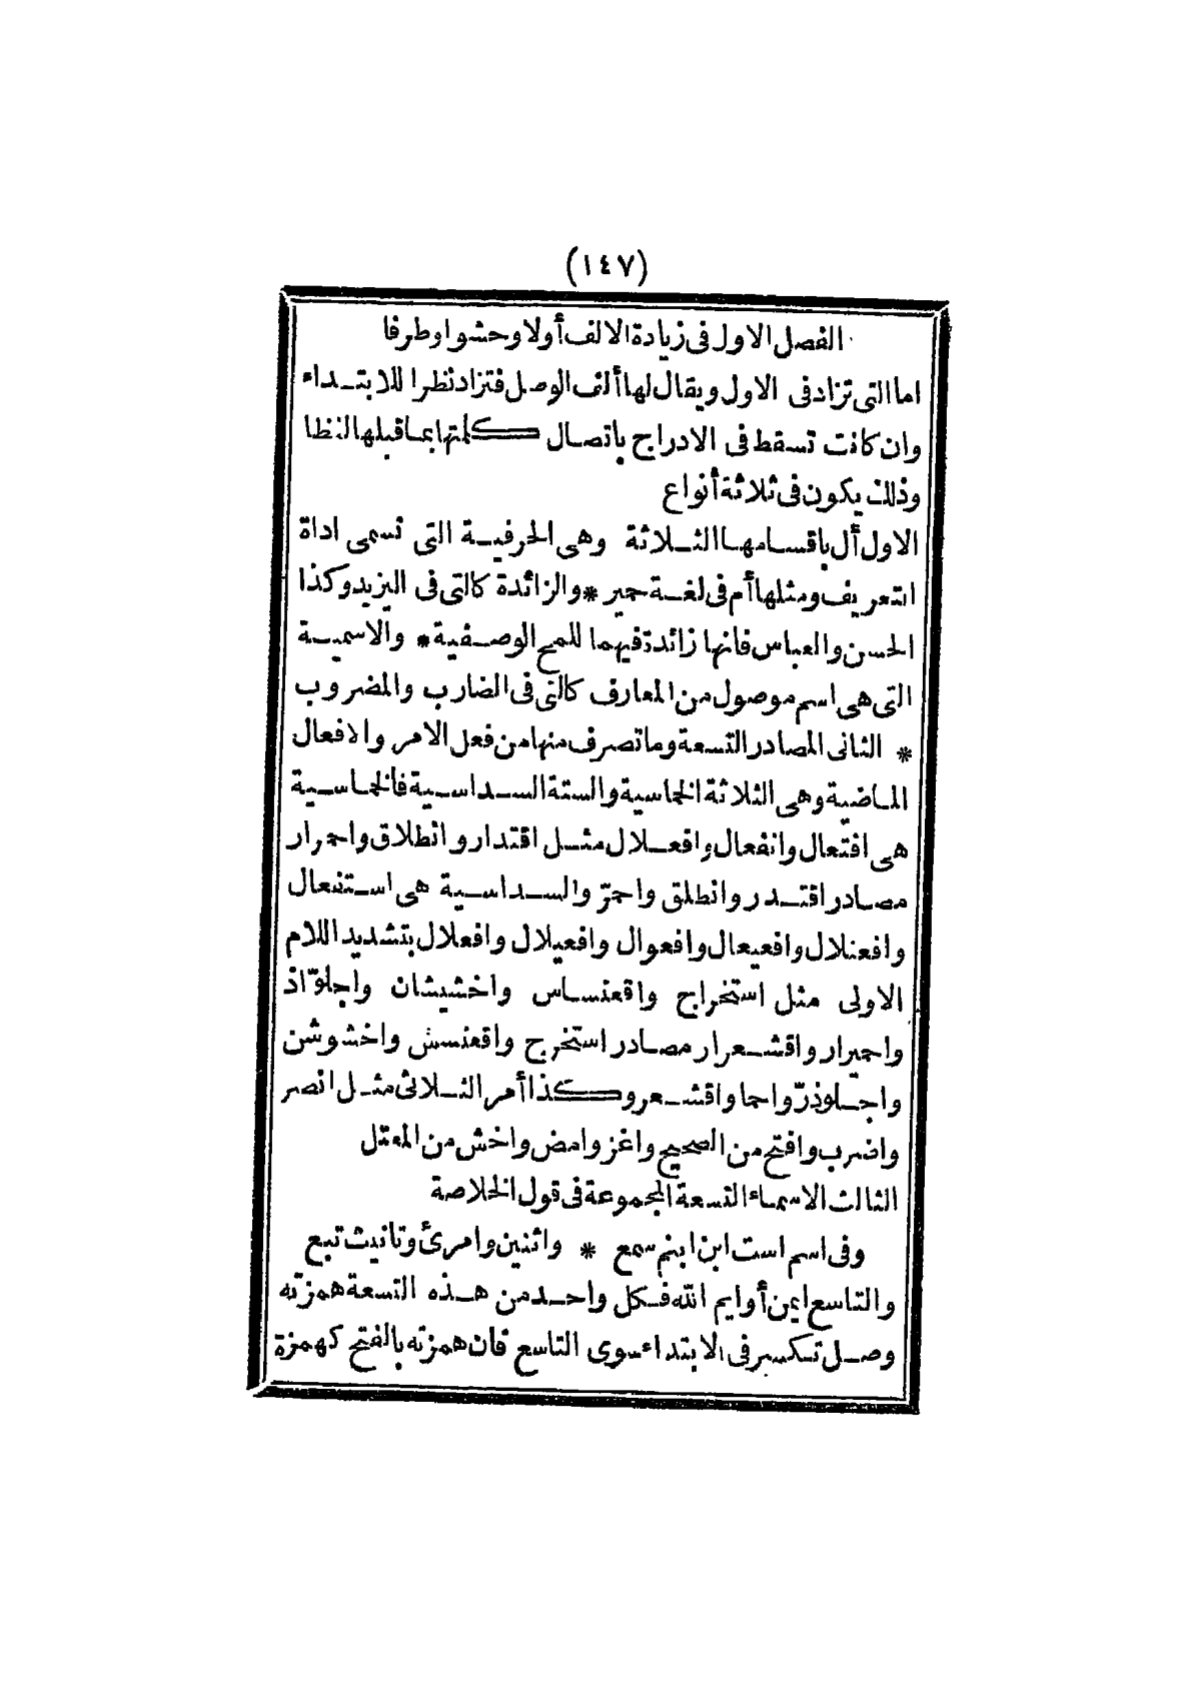 (١٤٧)
الفصل الاول فى زيادة الالف أولا وحشوا وطرفا
اما التى تزاد فى الاول ويقال لها ألف الوصل فتزاد نظرا للابتداء
وان كانت تسقط فى الادراج باتصال كلمتها بما قبلها لفظا
وذلك يكون فى ثلاثة أنواع
الاول أل باقسامها الثلاثة وهى الحرفية التى تسمى اداة
التعريف ومثلها أم فى لغة حمير * والزائدة كالتى فى اليزيد وكذا
الحسن والعباس فانها زائدة فيهما للمح الوصفية * والاسمية
التى هى اسم موصول من المعارف كالتى فى الضارب والمضروب
* الثانى المصادر التسعة وما تصرف منها من فعل الامر والافعال
الماضية وهى الثلاثة الخماسية والستة السداسية فالخماسية
هى افتعال وانفعال وافعلال مثل اقتدار وانطلاق واحمرار
مصادر اقتدر وانطلق واحمرّ والسداسية هى استفعال
وافعنلال وافعيعال وافعوال وافعيلال وافعلال بتشديد اللام
الاولى مثل استخراج واقعنساس واخشيشان واجلوّاذ
واحميرار واقشعرار مصادر استخرج واقعنسس واخشوشن
واجلوذ واحمارّ واقشعر وكذا أمر الثلاثى مثل انصر
واضرب وافتح من الصحيح واغز وامض واخش من المعتل
الثالث الاسماء التسعة المجموعة فى قول الخلاصة
وفى اسم است ابن ابنم سمع * واثنين وامرئ وتانيث تبع
والتاسع ايمن أو ايم الله فكل واحد من هذه التسعة همزته
وصل تكسر فى الابتداء سوى التاسع فان همزته بالفتح كهمزة